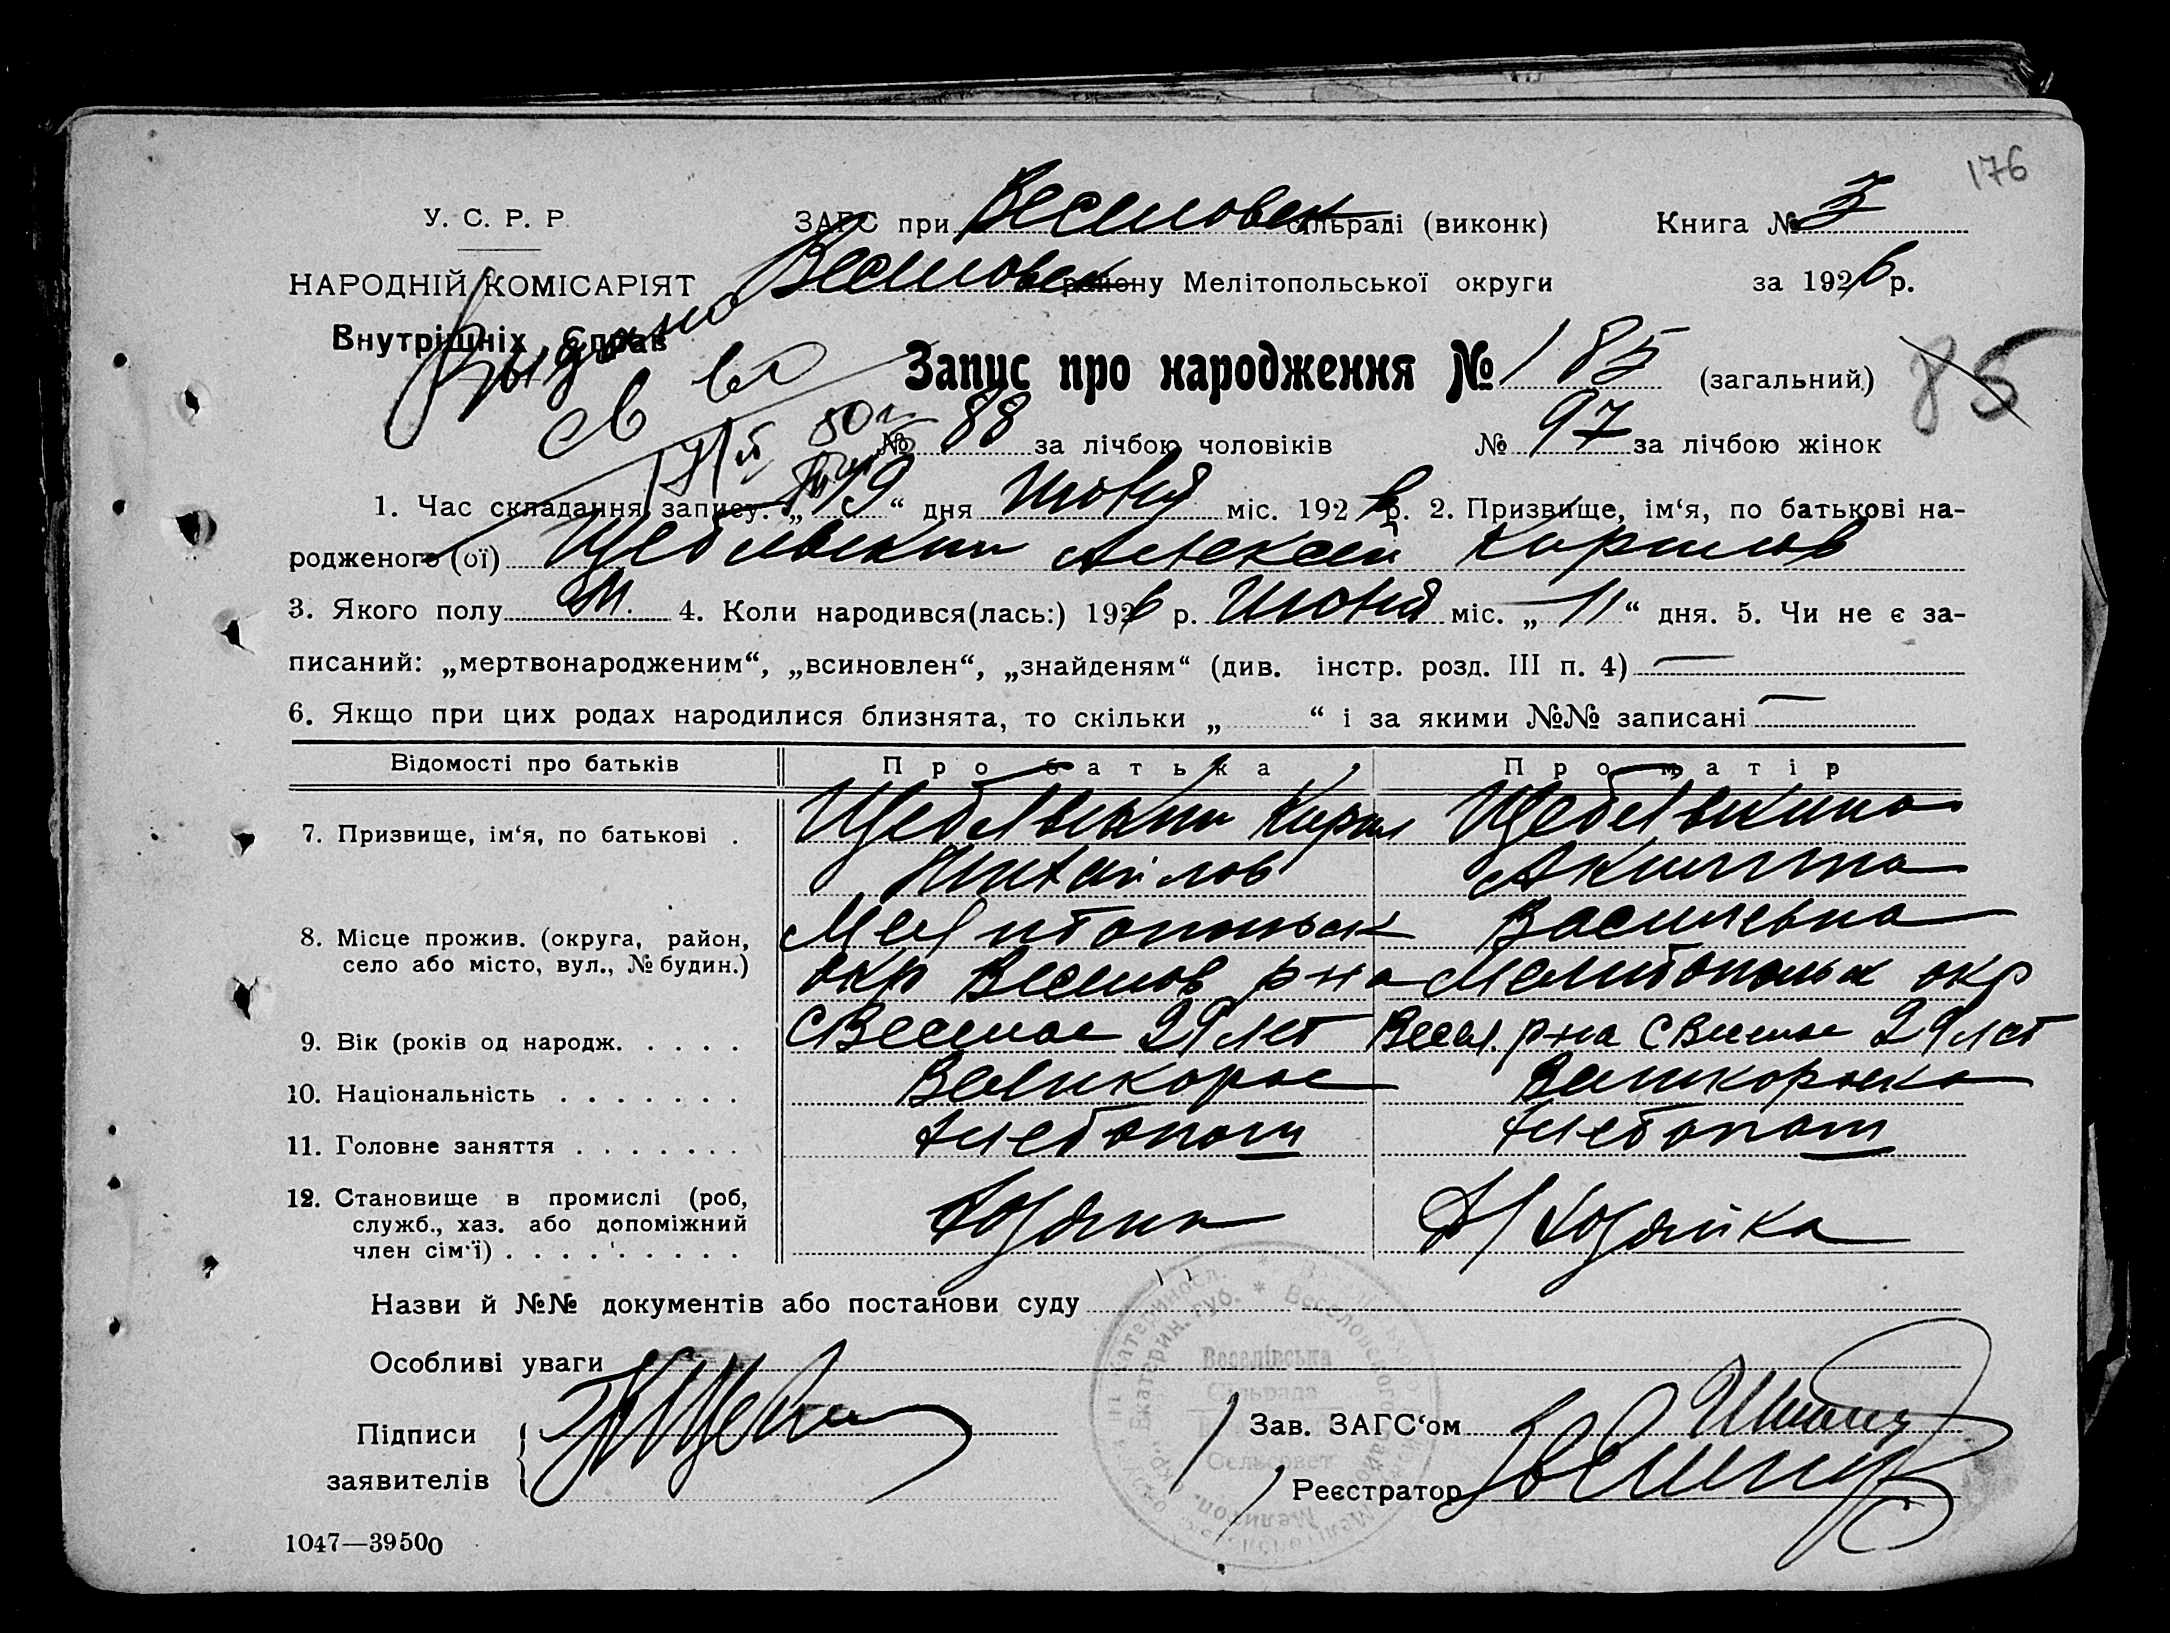 176
У. С. Р. Р.
ЗАГС при Веселовск сільраді (виконк) Книга № 3
НАРОДНІЙ КОМІСАРІЯТ
Веселовск району Мелітопольської округи за 1926 р.
Внутрішніх Справ
Выдано
св во
Запис про народження № 185 (загальний) 85
№ 88 за лічбою чоловіків № 97 за лічбою жінок
1. Час складання запису: „19“ дня Июня міс. 1926 р. 2. Призвище, ім‘я, по батькові на-
родженого (ої) Щеблывкин Алексей Кирилов
3. Якого полу М. 4. Коли народився(лась:) 1926 р. Июня міс. „11“ дня. 5. Чи не є за-
писаний: „мертвонародженим“, „всиновлен“, „знайденям“ (див. інстр. розд. III п. 4) —
6. Якщо при цих родах народилися близнята, то скільки „ “ і за якими №№ записані —
Відомості про батьків Про батька Про матір
7. Призвище, ім‘я, по батькові . Кирил
Михайлов Акилина
8. Місце прожив. (округа, район, Мелитопольск Василевна
село або місто, вул., № будин.) окр Веселов р-на Мелитопольск окр
9. Вік (років од народж. . . . . с Веселое 29 лет Весел. р-на с Веселое 29 лет
10. Національність . . . . . . . Великорос Великороска
11. Головне заняття . . . . . . . Хлебопаш Хлебопаш
12. Становище в промислі (роб, Хозяин Д/Хозяйка
служб., хаз. або допоміжний
член сім‘ї) . . . . . . . . . .
Назви й №№ документів або постанови суду
Особливі уваги
Веселівська
Сільрада
Сельсовет
Підписи
заявителів
Зав. ЗАГС‘ом
Реєстратор
1047—39500